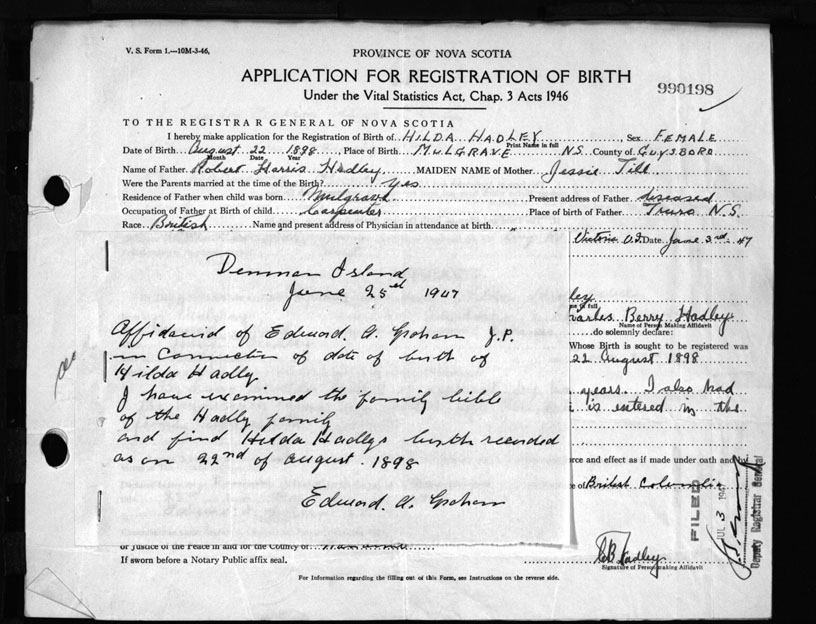 V. S. Form 1.—10M-3-46.
PROVINCE OF NOVA SCOTIA
APPLICATION FOR REGISTRATION OF BIRTH
990198
Under the Vital Statistics Act, Chap. 3 Acts 1946
TO THE REGISTRAR GENERAL OF NOVA SCOTIA
I hereby make application for the Registration of Birth of HILDA HADLEY, Sex FEMALE
Print Name in full
Date of Birth August 22 1898 Place of Birth MULGRAVE N.S. County of GUYSBORO
Month Date Year
Name of Father Robert Harris Hadley MAIDEN NAME of Mother Jessie Till
Were the Parents married at the time of the Birth? Yes
Residence of Father when child was born Mulgrave Present address of Father diseased
Occupation of Father at Birth of child Carpenter Place of birth of Father Truro N.S.
Race British Name and present address of Physician in attendance at birth
Victoria Date June 3rd 47
Denman Island
June 25th 1947
Affidavid of Edward. A. Graham J.P.
in Connection of date of birth of
Hilda Hadly
I have examined the family bible
of the Hadly family
and find Hilda Hadlys birth recorded
as on 22nd of august. 1898
Edward. A. Graham
ley
in full
harles Berry Hadley
Name of Person Making Affidavit
do solemnly declare:
Whose Birth is sought to be registered was
22 August 1898
years. I also had
is entered in the
rce and effect as if made under oath and by
of British Columbia
FILED
JUL 3 194
Deputy Registrar General
or Justice of the Peace in and for the County of
If sworn before a Notary Public affix seal.
CB Hadley
Signature of Person making Affidavit
For Information regarding the filling out of this Form, see Instructions on the reverse side.